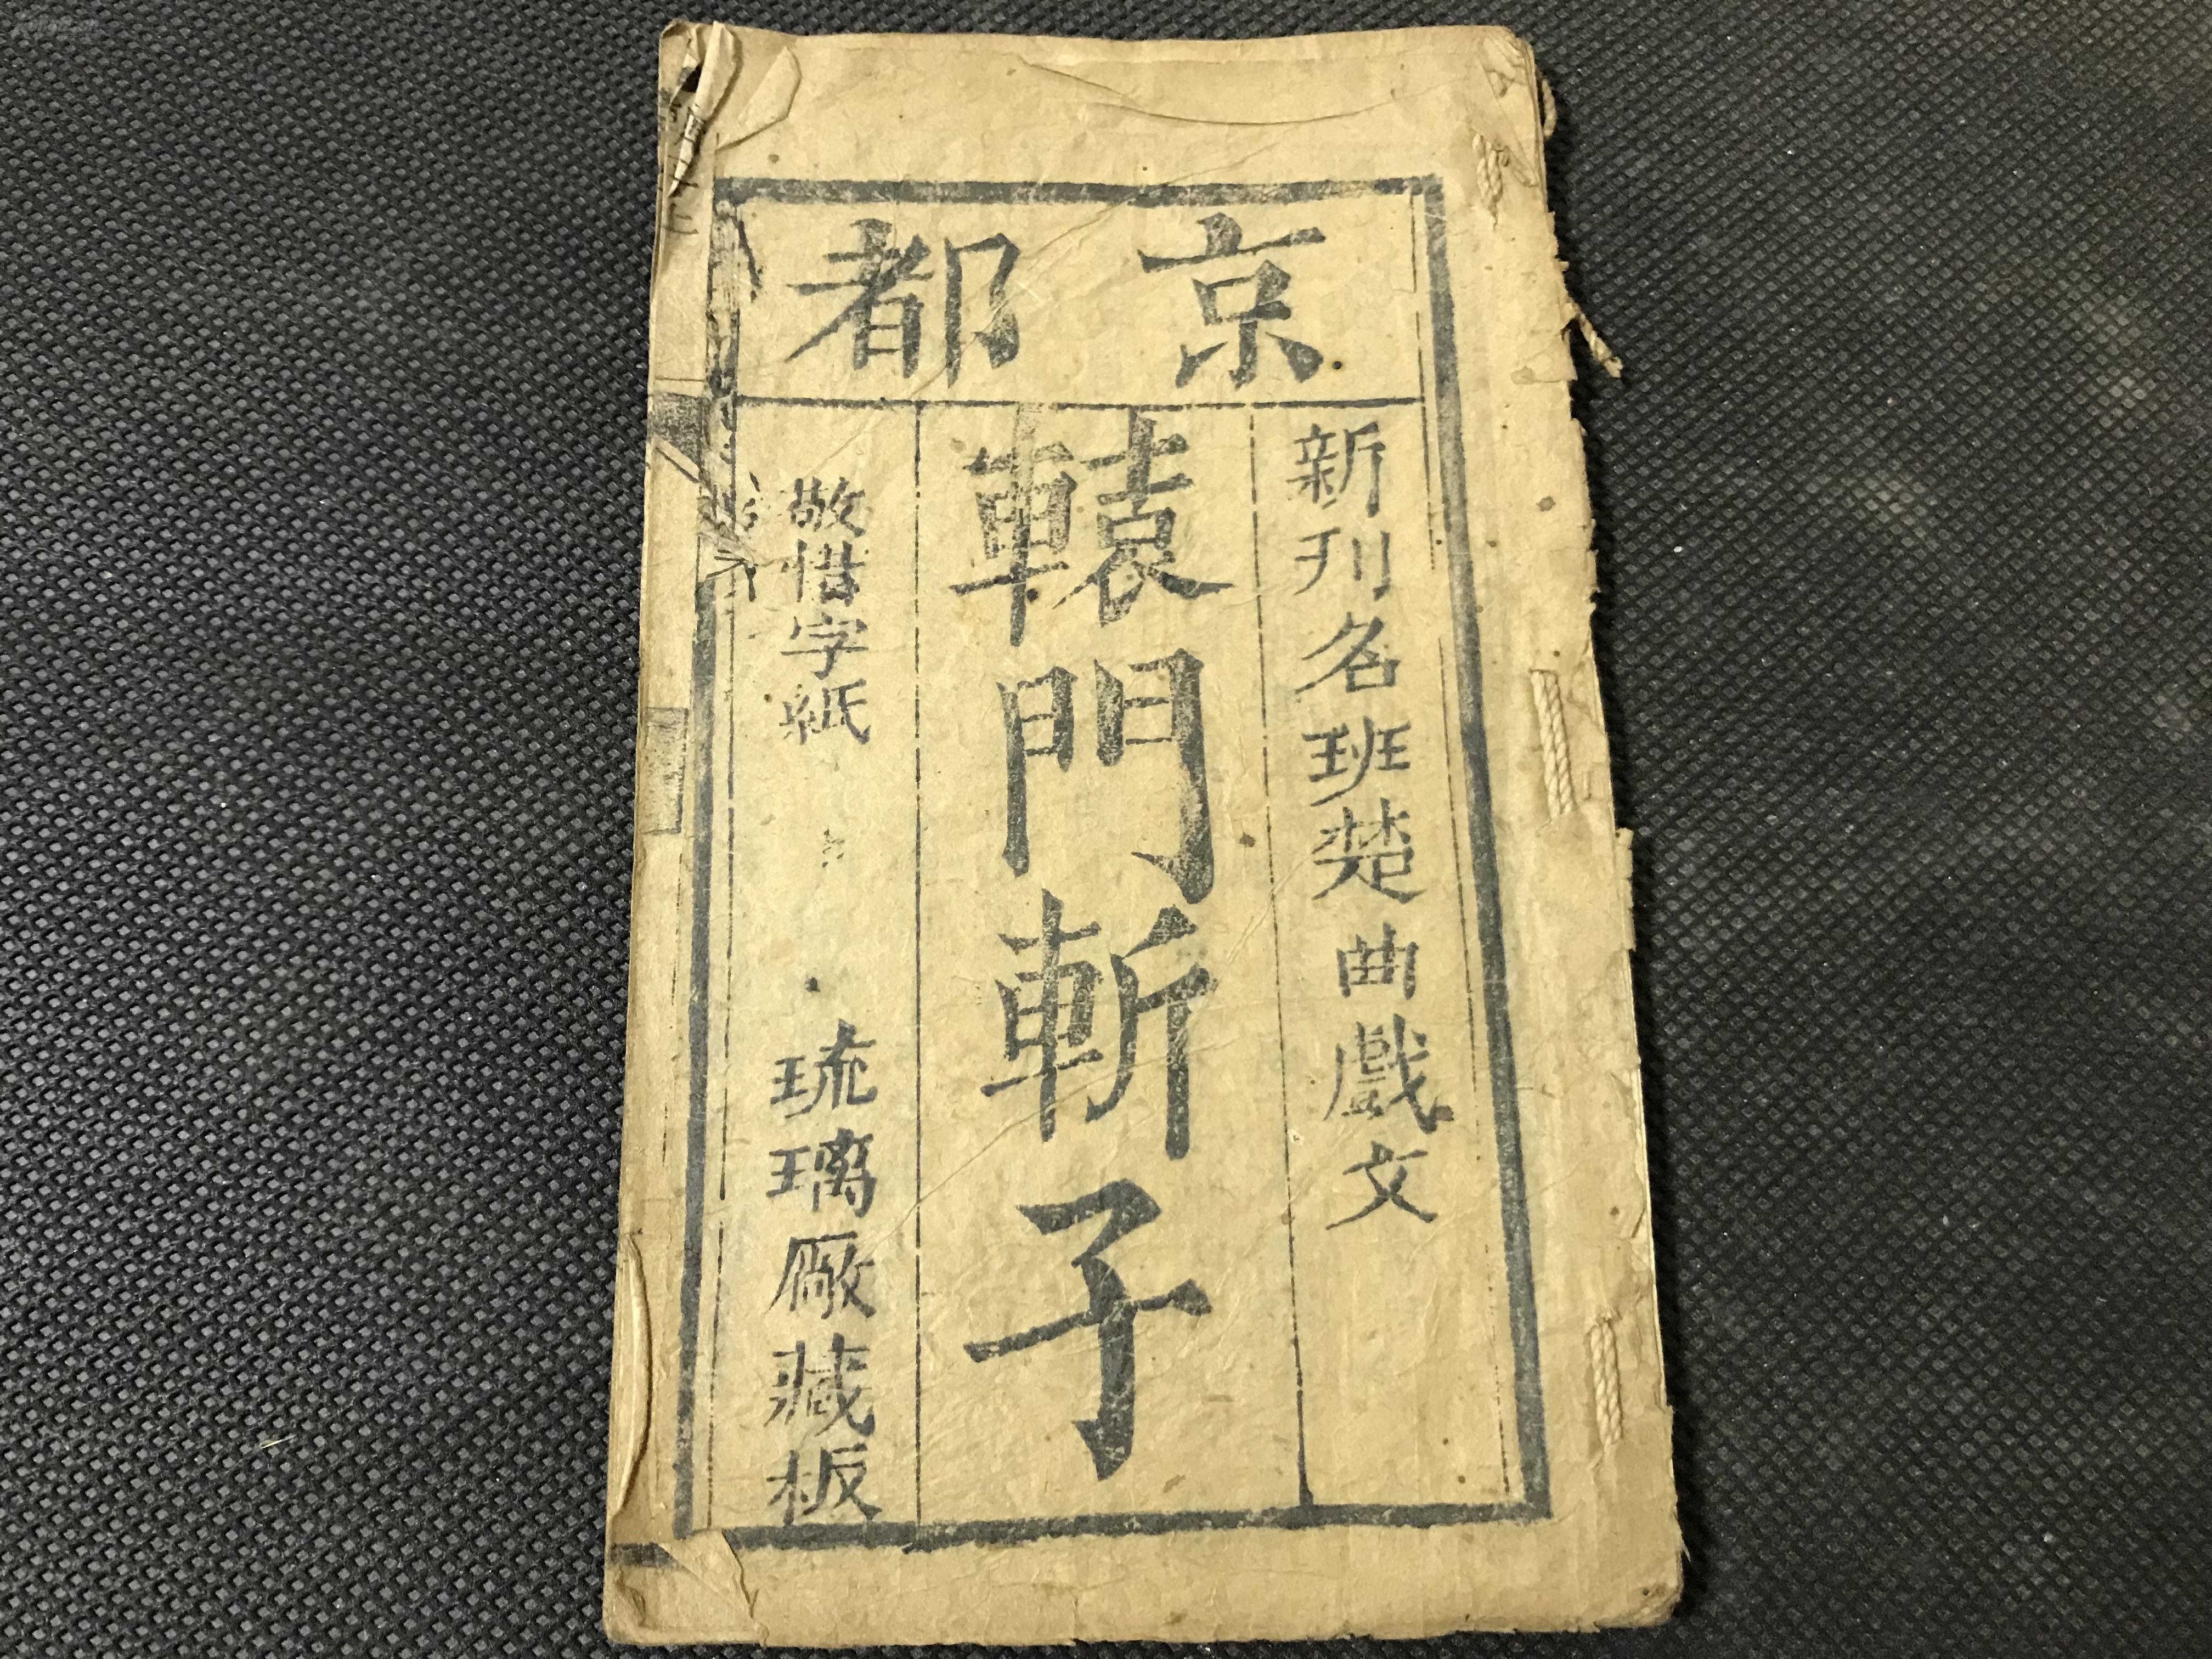 京都
新刋名班楚曲戲文
轅門斬子
敬惜字紙
琉璃廠藏板